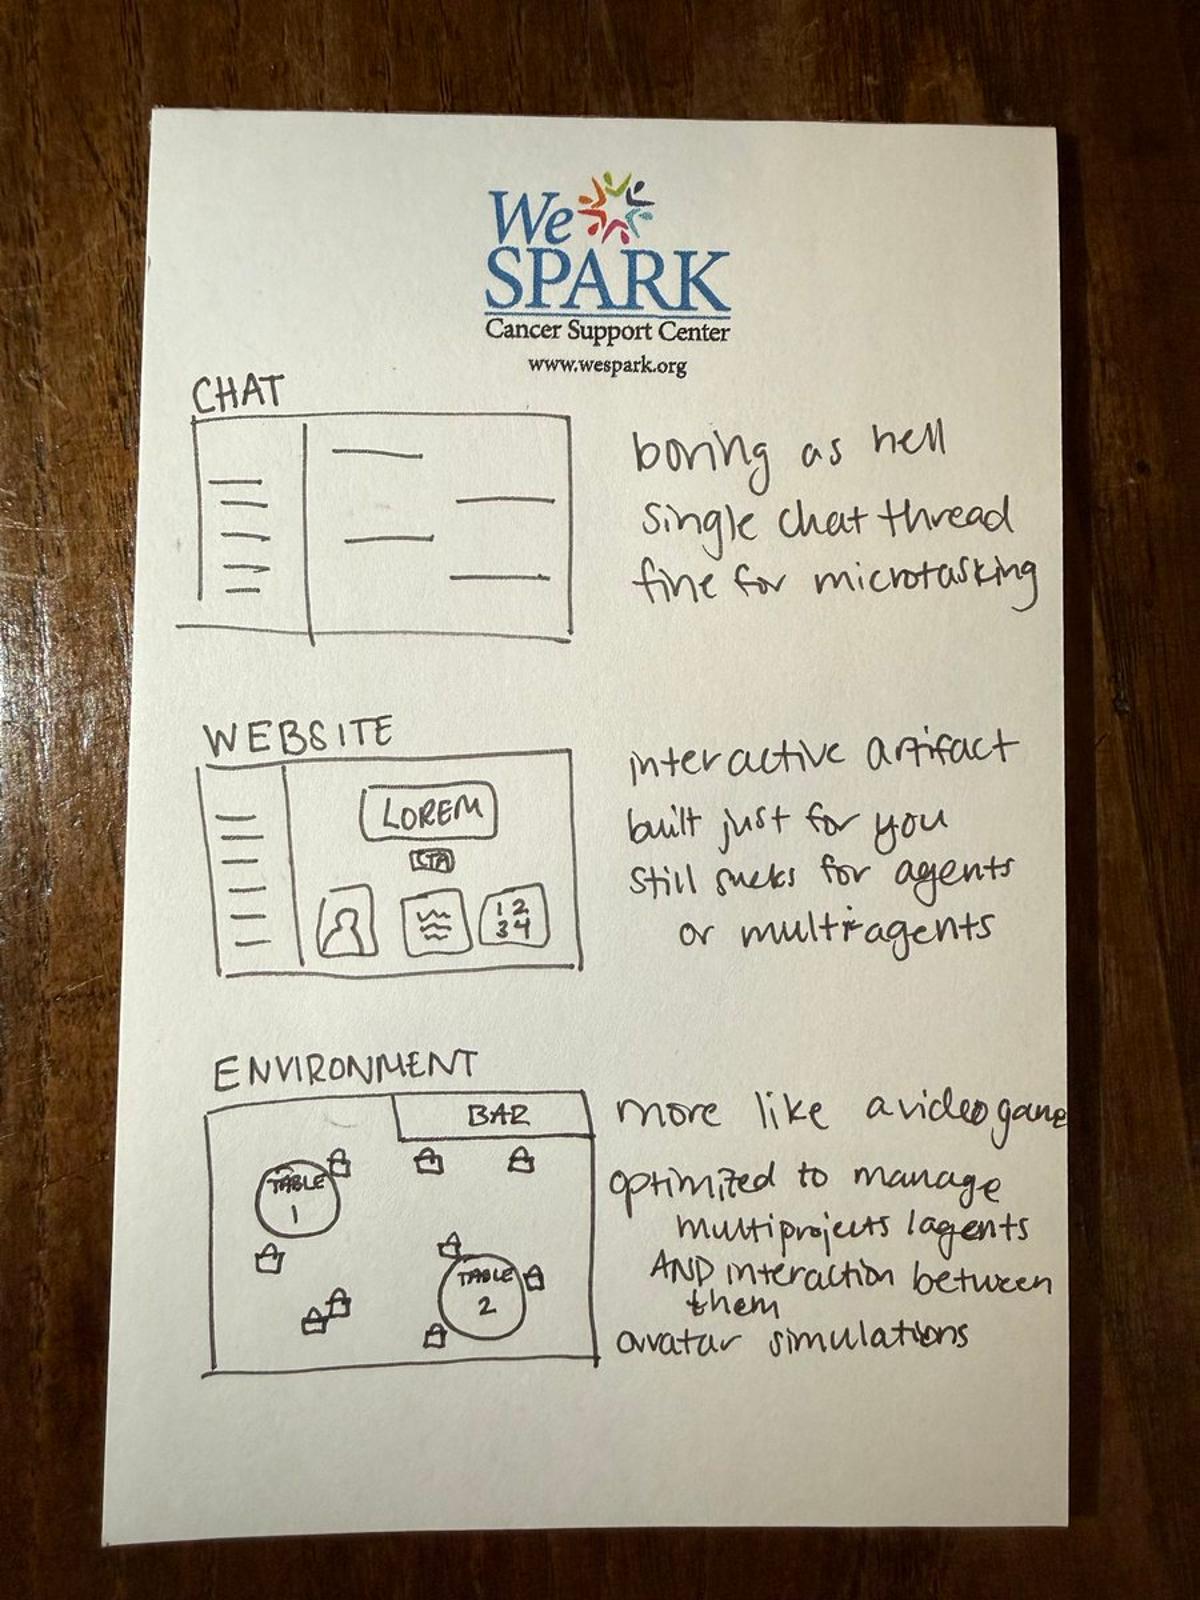 We
SPARK
Cancer Support Center
www.wespark.org
CHAT
boring as hell
single chat thread
fine for microtasking
WEBSITE
LOREM
CTA
1 2
3 4
interactive artifact
built just for you
still sucks for agents
or multi-agents
ENVIRONMENT
BAR
TABLE
1
TABLE
2
more like a video game
optimized to manage
multiprojects / agents
AND interaction between
them
avatar simulations